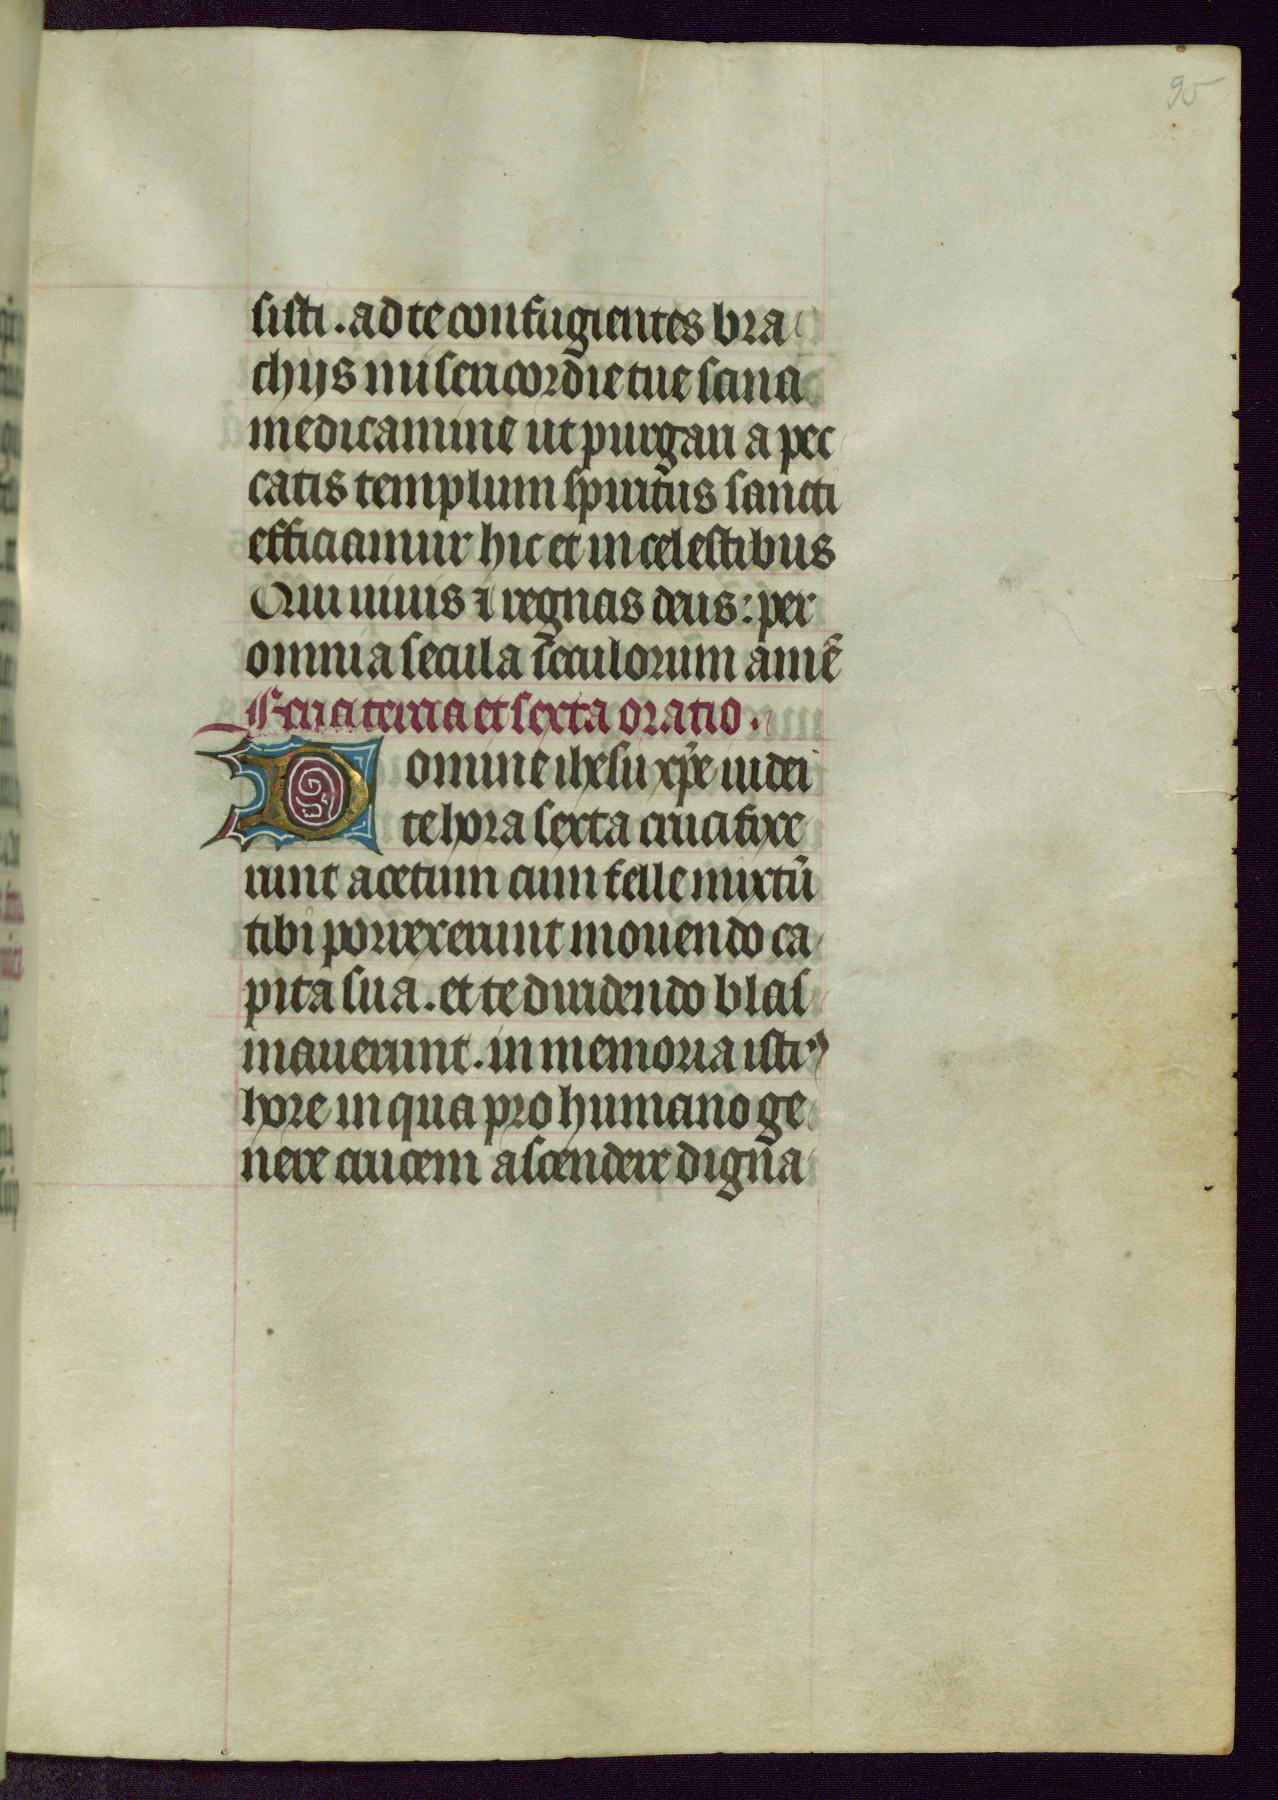 95
sisti . ad te confugientes bra
chijs misericordie tue sana
medicamine ut purgati a pec
catis templum spiritus sancti
efficiamur hic et in celestibus
Qui uiuis ⁊ regnas deus : per
omnia secula seculorum amē
Feria terna et sexta oratio .
Domine ihesu xp̄e iudei
te hora sexta crucifixe
runt acetum cum felle mixtū
tibi porrexerunt mouendo ca
pita sua . et te diuidendo blas
mauerunt . in memoria istiꝰ
hore in qua pro humano ge
nere crucem ascendere digna